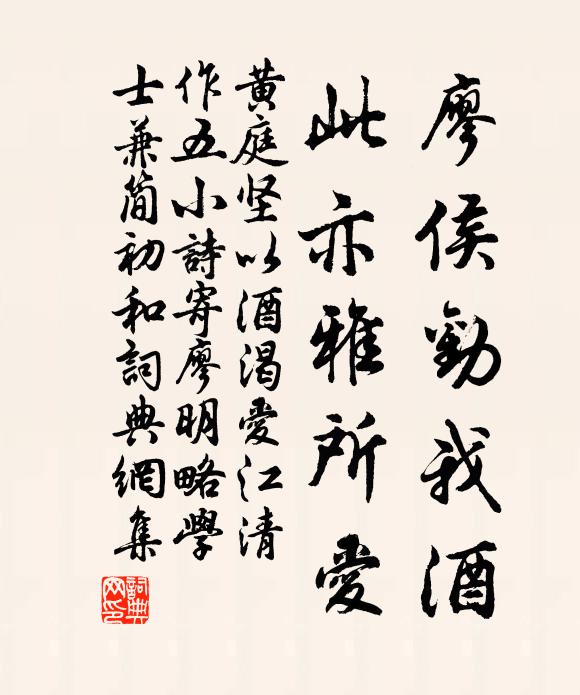 廖侯勸我酒
此亦雅所愛
黃庭坚以酒渴愛江清
作五小詩寄廖明略學
士兼简初和詞典網集
詞典网印